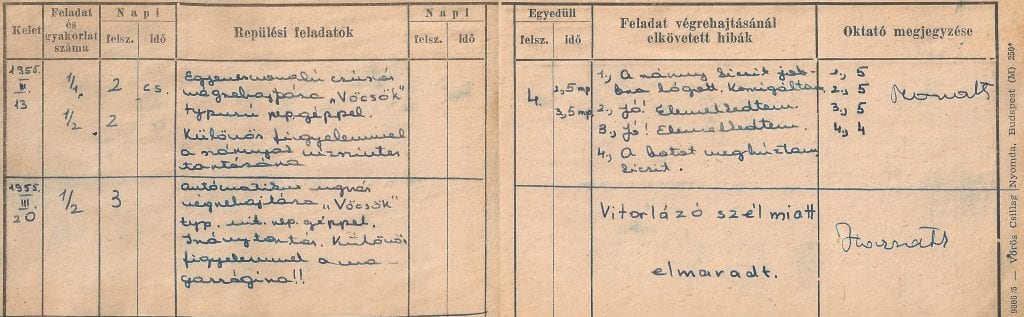 Kelet
Feladat és gyakorlat száma
Napi
felsz.
idő
Repülési feladatok
Napi
felsz.
idő
Egyedüli
felsz.
idő
Feladat végrehajtásánál elkövetett hibák
Oktató megjegyzése
1955. III. 13
1/1 2 cs.
1/2 2
Egyenesvonalú csúszás
végrehajtására „Vöcsök"
typusú rep. géppel.
Különös figyelemmel
a szárnyak vízszintes
tartására
4.
2,5 mp
3,5 mp
1., A szárny kicsit job-
bra lógott. Korrigáltam
2., Jó! Elemelkedtem.
3., Jó! Elemelkedtem.
4., A botot meghúztam
kicsit.
1., 5
2., 5
3., 5
4., 4
Horváth
1955. III. 20
1/2 3
Automatikus ugrás
végrehajtására „Vöcsök"
typ. vit. rep. géppel.
Iránytartás. Különös
figyelemmel a ma-
gasságra!!
Vitorlázó szél miatt
elmaradt.
Horváth
9806/5 — Vörös Csillag Nyomda, Budapest (M) 250*